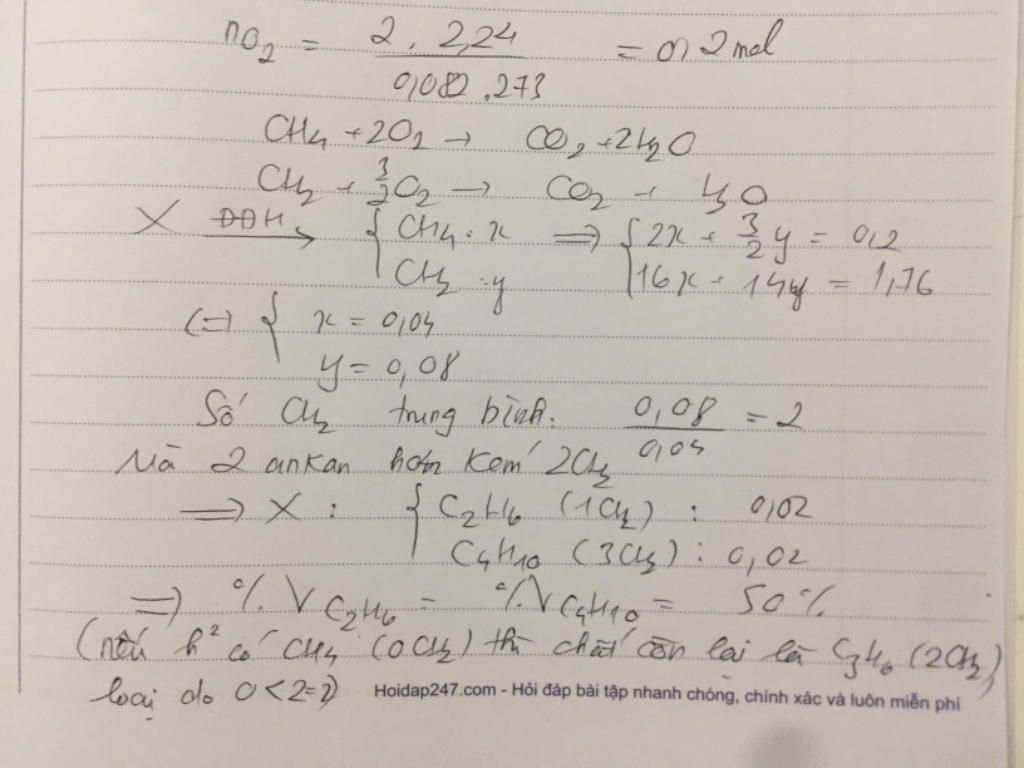 nO₂ = 2 . 2,24 / 0,082 . 273 = 0,2 mol
CH₄ + 2O₂ → CO₂ + 2H₂O
CH₂ + 3/2 O₂ → CO₂ + H₂O
X ĐĐH→ { CH₄ : x ⇒ { 2x + 3/2 y = 0,2
CH₂ : y 16x + 14y = 1,76
(=) { x = 0,04
y = 0,08
Số CH₂ trung bình. 0,08 / 0,04 = 2
Mà 2 ankan hơn kém 2CH₂
⇒ X : { C₂H₆ (1CH₂) : 0,02
C₄H₁₀ (3CH₂) : 0,02
⇒ %V C₂H₆ = %V C₄H₁₀ = 50%
(nếu h² có CH₄ (0CH₂) thì chất còn lại là C₃H₆ (2CH₂)
loại do 0<2=2)
Hoidap247.com - Hỏi đáp bài tập nhanh chóng, chính xác và luôn miễn phí